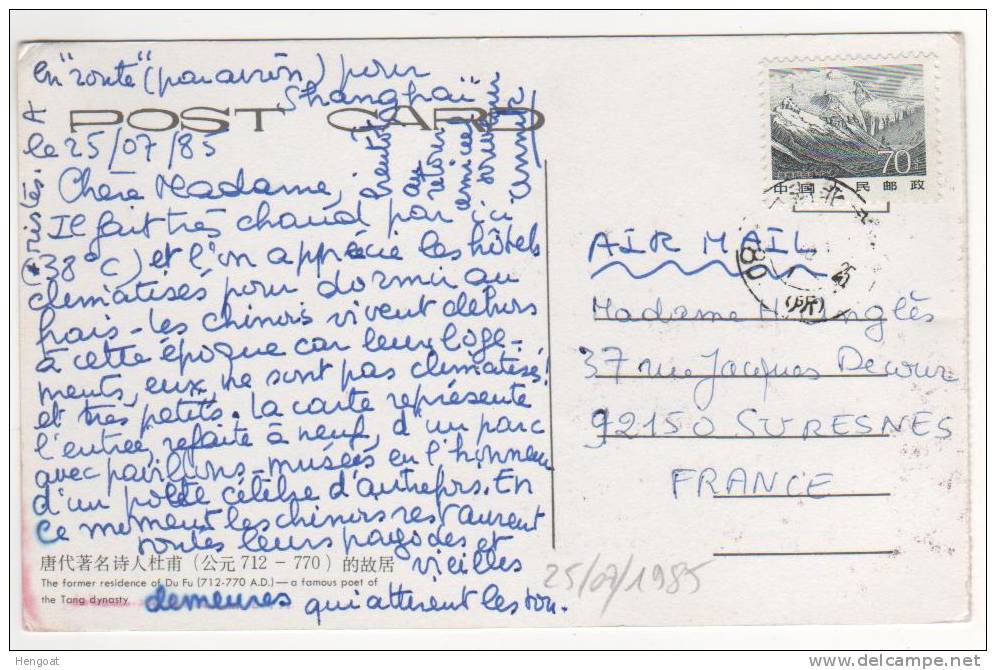 en "route" (par avion) pour
Shanghaï
POST CARD
le 25/07/85
Chère Madame,
au
retour
amical
souvenir
Il fait très chaud par ici
38°C) et l'on apprécie les hôtels
climatisés pour dormir au
frais - les chinois vivent dehors
à cette époque car leurs loge-
ments, eux ne sont pas climatisés!
et très petits. La carte représente
l'entrée, refaite à neuf, d'un parc
avec pavillons-musées en l'honneur
d'un poète célèbre d'autrefois. En
ce moment les chinois restaurent
toutes leurs pagodes et
vieilles
demeures qui attirent les tou.
(*ristes. A
唐代著名诗人杜甫（公元 712 - 770）的故居
The former residence of Du Fu (712-770 A.D.)—a famous poet of
the Tang dynasty
70
中国人民邮政
AIR MAIL
Madame
37 rue Jacques Decour
92150 SURESNES
FRANCE
25/07/1985
Hengoat
delcampe.net